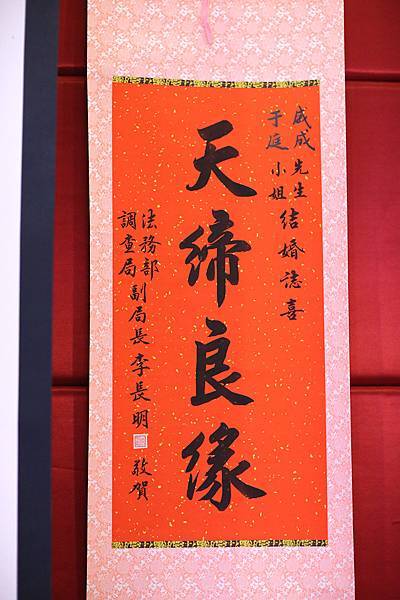 威成 先生
于庭 小姐
結婚誌喜
天締良緣
法務部
調查局
副局長 李長明 敬賀